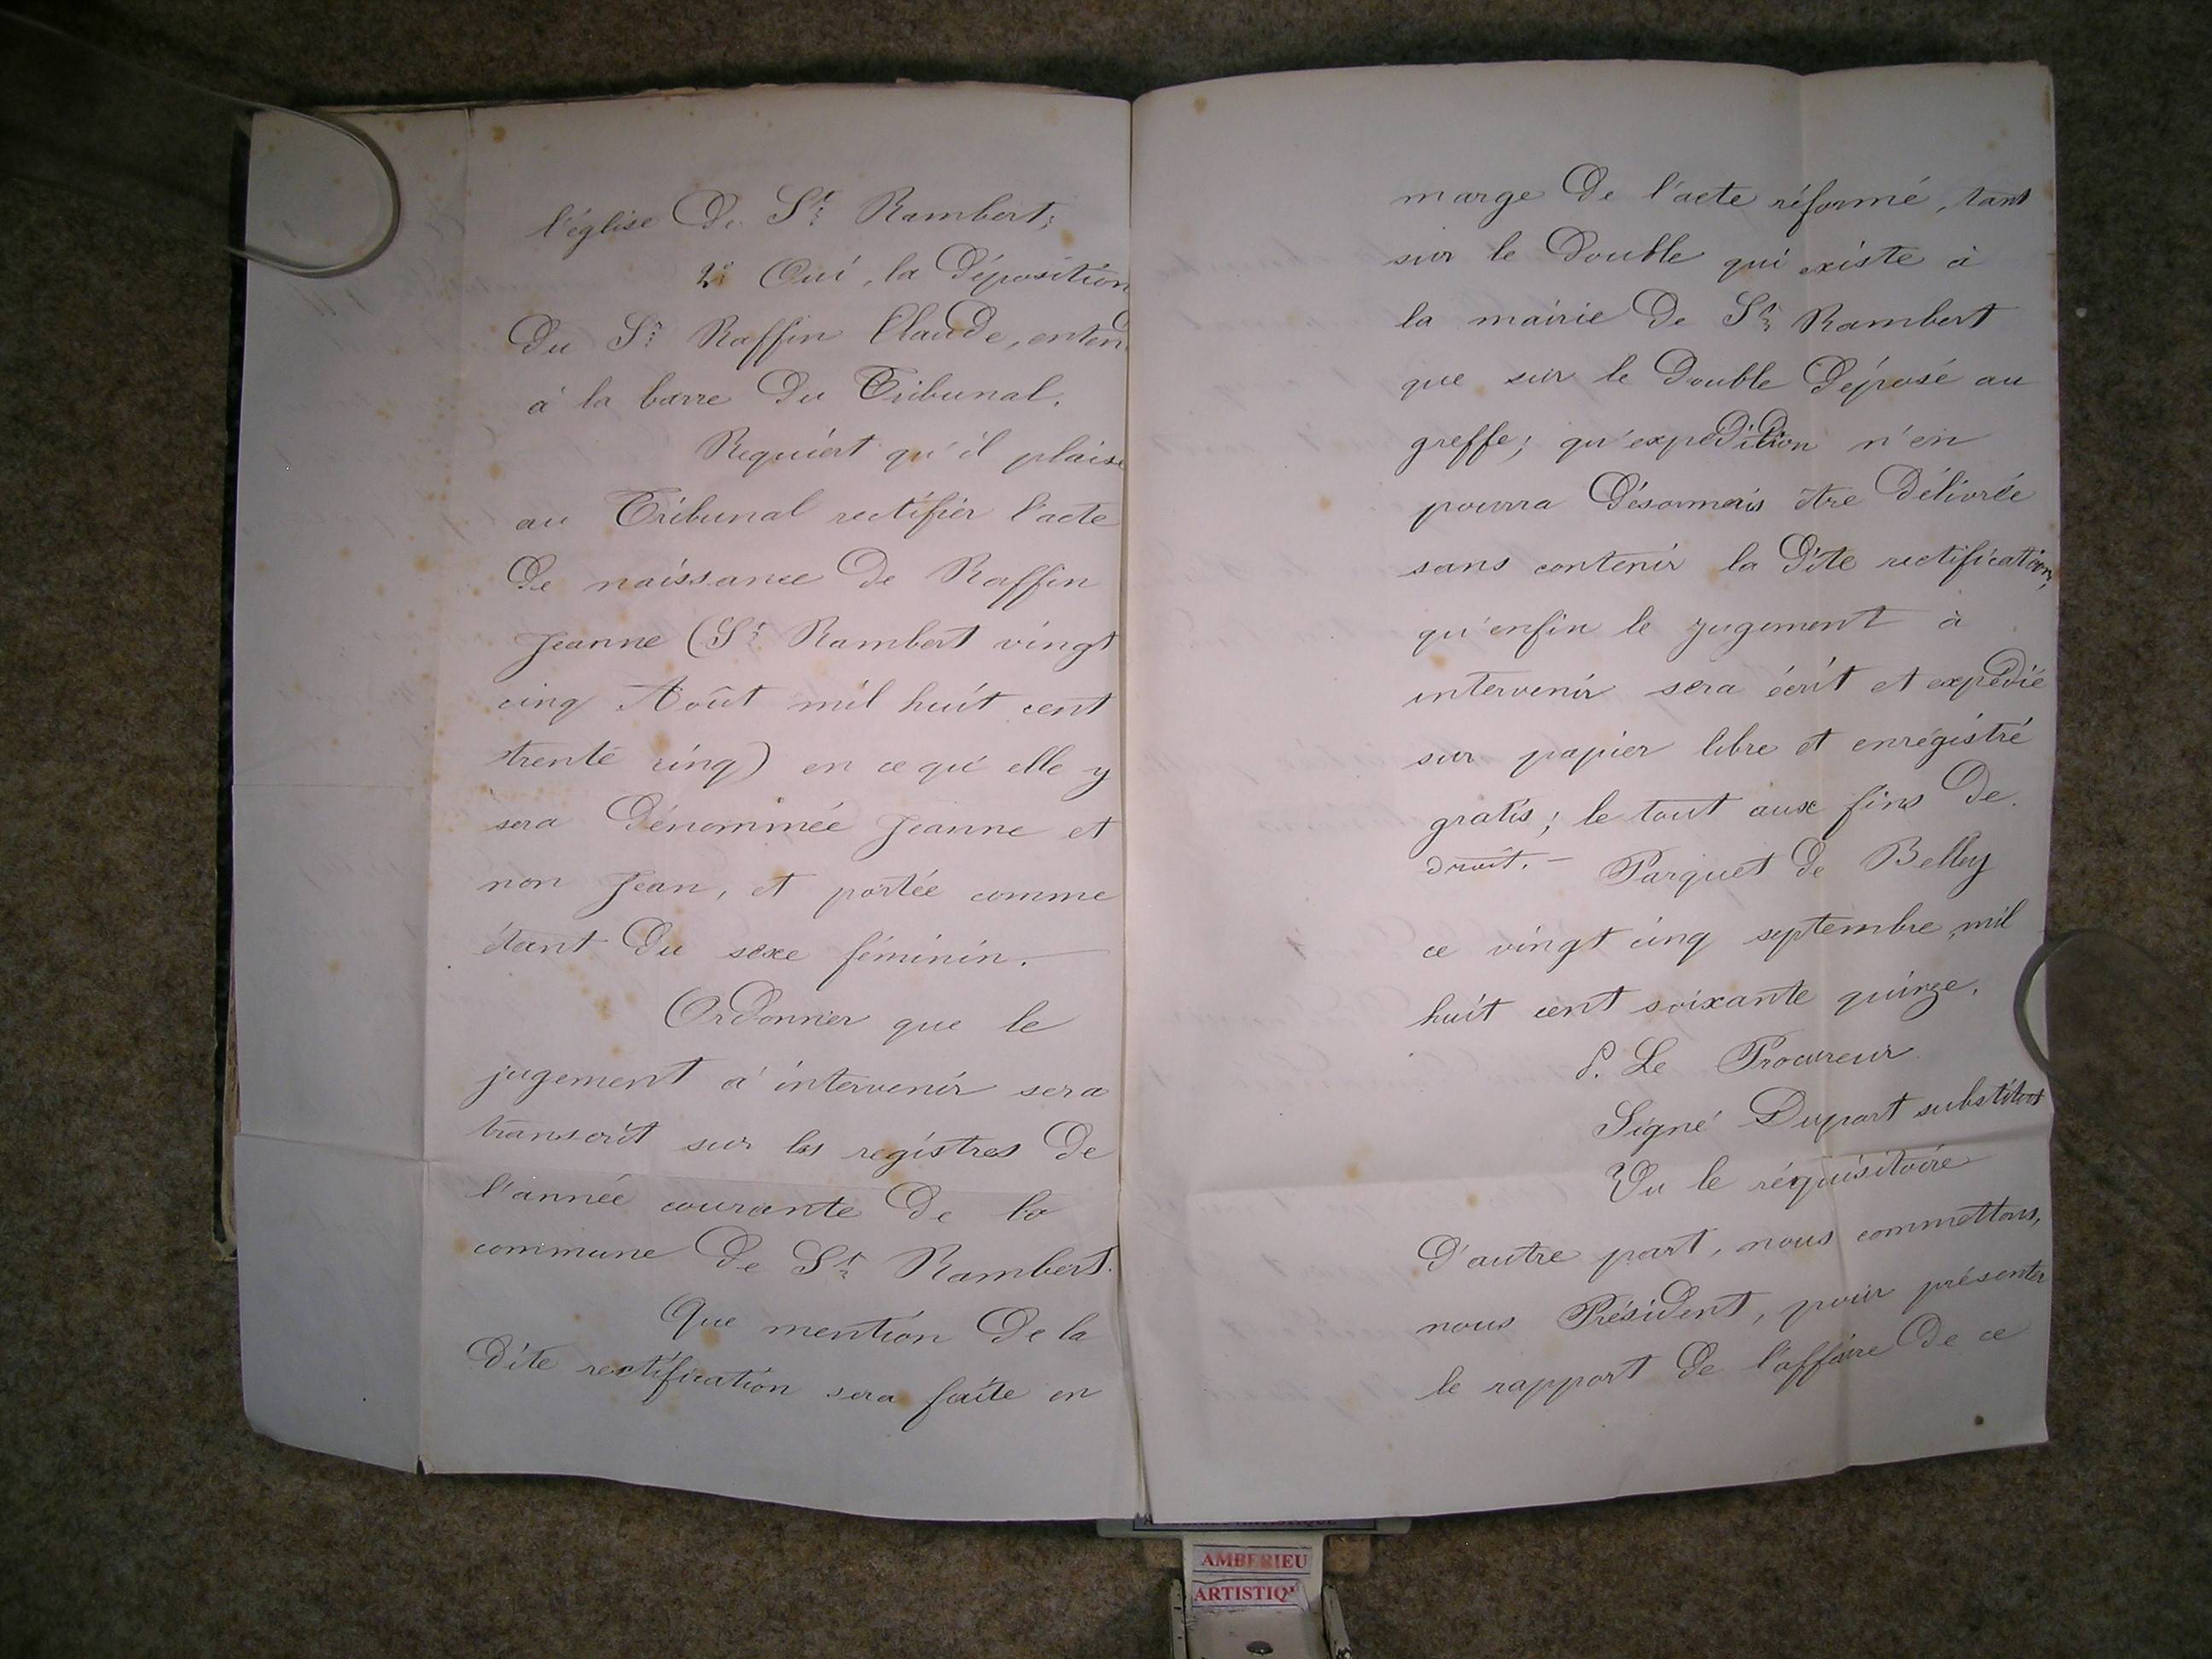 l'église De St Rambert;
2° Oui, la Déposition
Du Sr Raffin Claude, enten
à la barre Du Tribunal.
Requiert qu'il plaise
au Tribunal rectifier l'acte
De naissance De Raffin
Jeanne (St Rambert vingt
cinq Août mil huit cent
trente cinq) en ce qu'elle y
sera Dénommée Jeanne et
non Jean, et portée comme
étant Du sexe féminin.
Ordonner que le
jugement à intervenir sera
transcrit sur les registres De
l'année courante De la
commune De St Rambert.
Que mention De la
Dite rectification sera faite en
marge De l'acte réformé, tant
sur le Double qui existe à
la mairie De St Rambert
que sur le Double Déposé au
greffe; qu'expédition n'en
pourra Désormais être Délivrée
sans contenir la Dite rectification,
qu'enfin le jugement à
intervenir sera écrit et expédié
sur papier libre et enrégistré
gratis; le tout aux fins De
Droit. — Parquet De Belley
ce vingt cinq septembre mil
huit cent soixante quinze.
P. Le Procureur
Signé Dupart substitut
Vu le réquisitoire
D'autre part, nous commettons,
nous Président, pour présenter
le rapport De l'affaire De ce
AMBERIEU
ARTISTIQ